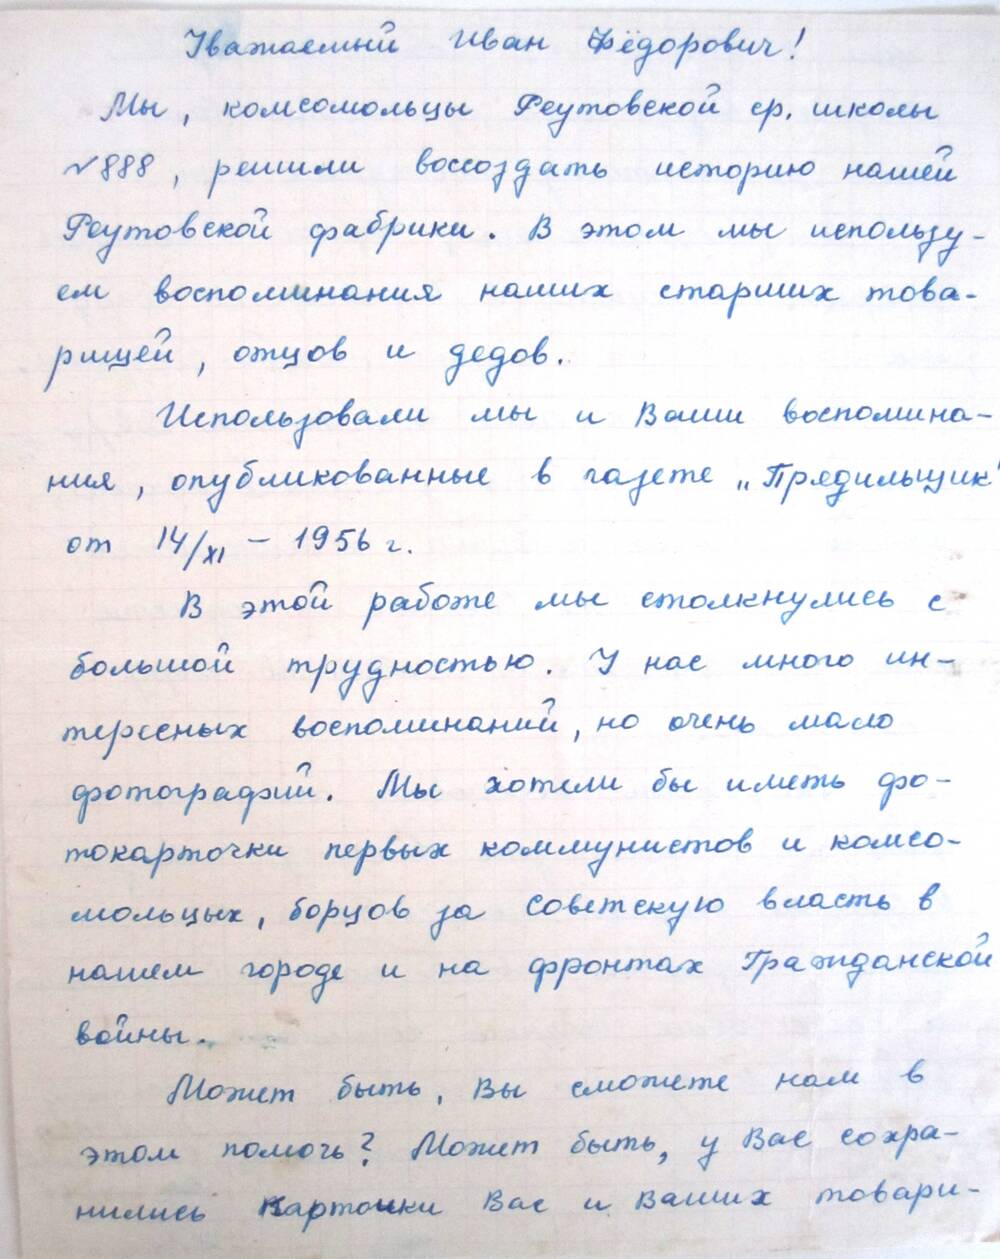 Уважаемый Иван Фёдорович!
Мы, комсомольцы Реутовской ср. школы
№888, решили воссоздать историю нашей
Реутовской фабрики. В этом мы использу-
ем воспоминания наших старших това-
рищей, отцов и дедов.
Использовали мы и Ваши воспомина-
ния, опубликованные в газете „Прядильщик"
от 14/XI – 1956 г.
В этой работе мы столкнулись с
большой трудностью. У нас много ин-
тересных воспоминаний, но очень мало
фотографий. Мы хотели бы иметь фо-
токарточки первых коммунистов и комсо-
мольцых, борцов за Советскую власть в
нашем городе и на фронтах Гражданской
войны.
Может быть, Вы сможете нам в
этом помочь? Может быть, у Вас сохра-
нились карточки Вас и Ваших товари-